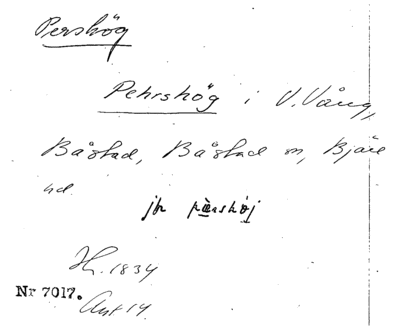 Pershög
Pehrshög i V. Vång,
Båstad, Båstad sn, Bjäre
hd.
jfr pærshöj
H. 1834
Nr 7017.
Avs 14.